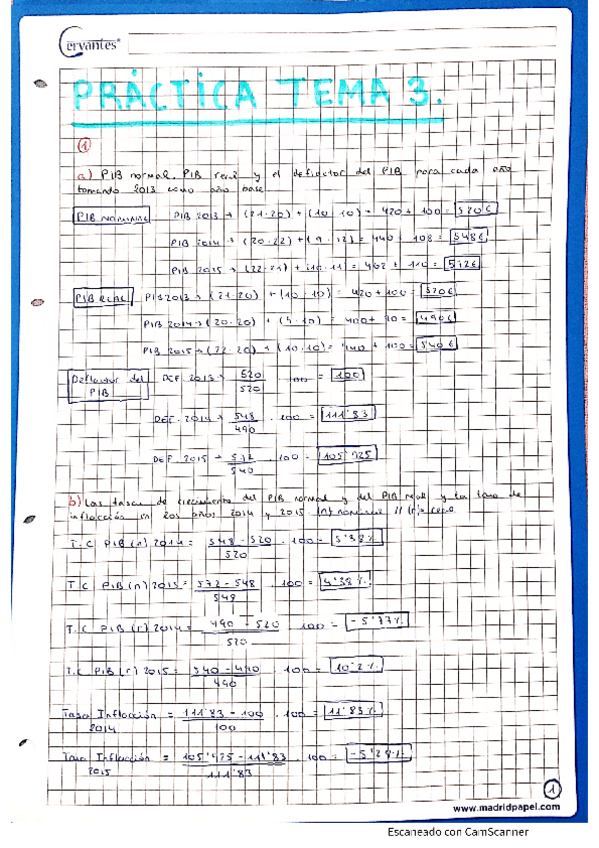 Cervantes
PRÁCTICA TEMA 3.
1
a) PIB normal, PIB real y el deflactor del PIB para cada año
tomando 2013 como año base
PIB NOMINAL PIB 2013 → (21·20) + (10·10) = 420 + 100 = 520€
PIB 2014 → (20·22) + (9·12) = 440 + 108 = 548€
PIB 2015 → (22·21) + (10·11) = 462 + 110 = 572€
PIB REAL PIB 2013 → (21·20) + (10·10) = 420 + 100 = 520€
PIB 2014 → (20·20) + (9·10) = 400 + 90 = 490€
PIB 2015 → (22·20) + (10·10) = 440 + 100 = 540€
Deflactor del PIB DEF 2013 → 520/520 · 100 = 100
DEF. 2014 → 548/490 · 100 = 111'83
DEF 2015 → 572/540 · 100 = 105'925
b) Las tasas de crecimiento del PIB normal y del PIB real y la tasa de
inflacción en los años 2014 y 2015 (n) nominal // (r)
T.C PIB (n) 2014 = 548 - 520/520 · 100 = 5'38%
T.C PIB (n) 2015 = 572 - 548/548 · 100 = 4'38%
T.C PIB (r) 2014 = 490 - 520/520 · 100 = -5'77%
T.C PIB (r) 2015 = 540 - 490/490 · 100 = 10'2%
Tasa Inflacción 2014 = 111'83 - 100/100 · 100 = 11'83%
Tasa Inflacción 2015 = 105'925 - 111'83/111'83 · 100 = -5'28%
1
www.madridpapel.com
Escaneado con CamScanner